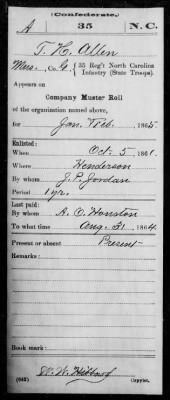 (Confederate.)
A 35 N.C.
T. H. Allen
Co. G, 35 Reg't North Carolina
Infantry (State Troops).
Appears on
Company Muster Roll
of the organization named above,
for Jan. & Feb. 1865
Enlisted:
When Oct. 5 1861.
Where Henderson
By whom J. P. Jordan
Period 1 yr.
Last paid:
By whom A. C. Houston
To what time Aug. 31 1864.
Present or absent Present
Remarks:
Book mark:
(642) Copyist.